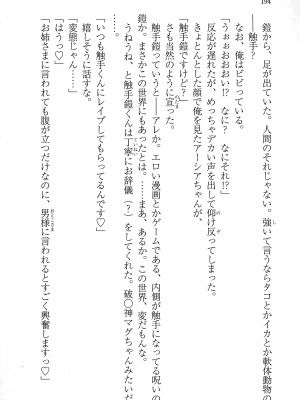 194
鎧から、足が出ていた。人間のそれじゃない。強いて言うならタコとかイカとか軟体動物の
――触手？
なお、俺はビビっている。
「うぉぉおおおぃ!?　なに？　なにそれ!?」
反応が遅れたが、めっちゃデカい声を出して仰け反ってしまった。
きょとんとした顔で俺を見たアーシアちゃんが、
「触手鎧ですけど？」
さも当然のように宣った。
触手鎧っていうと――アレか。エロい漫画とかゲームである、内側が触手になってる呪いの
鎧か。まさかこの世界にもあったとは。……まあ、あるか。この世界、変だもんな。
うねうね、と触手鎧くんは丁寧にお辞儀（？）をしてくれた。破〇神マグちゃんみたいだ
「いつも触手くんにレイプしてもらってるんです♡」
嬉しそうに話すな。
「変態じゃん……」
「はうっ♡」
「お姉さまに言われても腹が立つだけなのに、男様に言われるとすごく興奮しますっ♡」